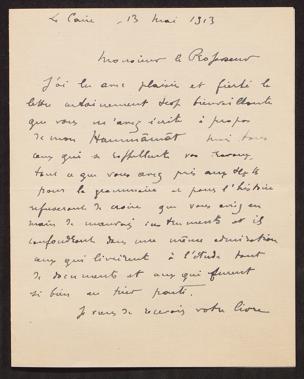 Le Caire, 13 Mai 1913
Monsieur le Professeur
J'ai lu avec plaisir et fierté la
lettre certainement trop bienveillante
que vous m'avez écrite à propos
de mon Hammâmât mais tous
ceux qui
tout ce que vous avez pris aux
pour la grammaire et pour l'histoire
refuseront de croire que vous aviez en
main de mauvais instruments et ils
confondront dans une même admiration
ceux qui livrèrent à l'étude tant
de documents et ceux qui surent
si bien en tirer parti.
Je viens de recevoir votre livre